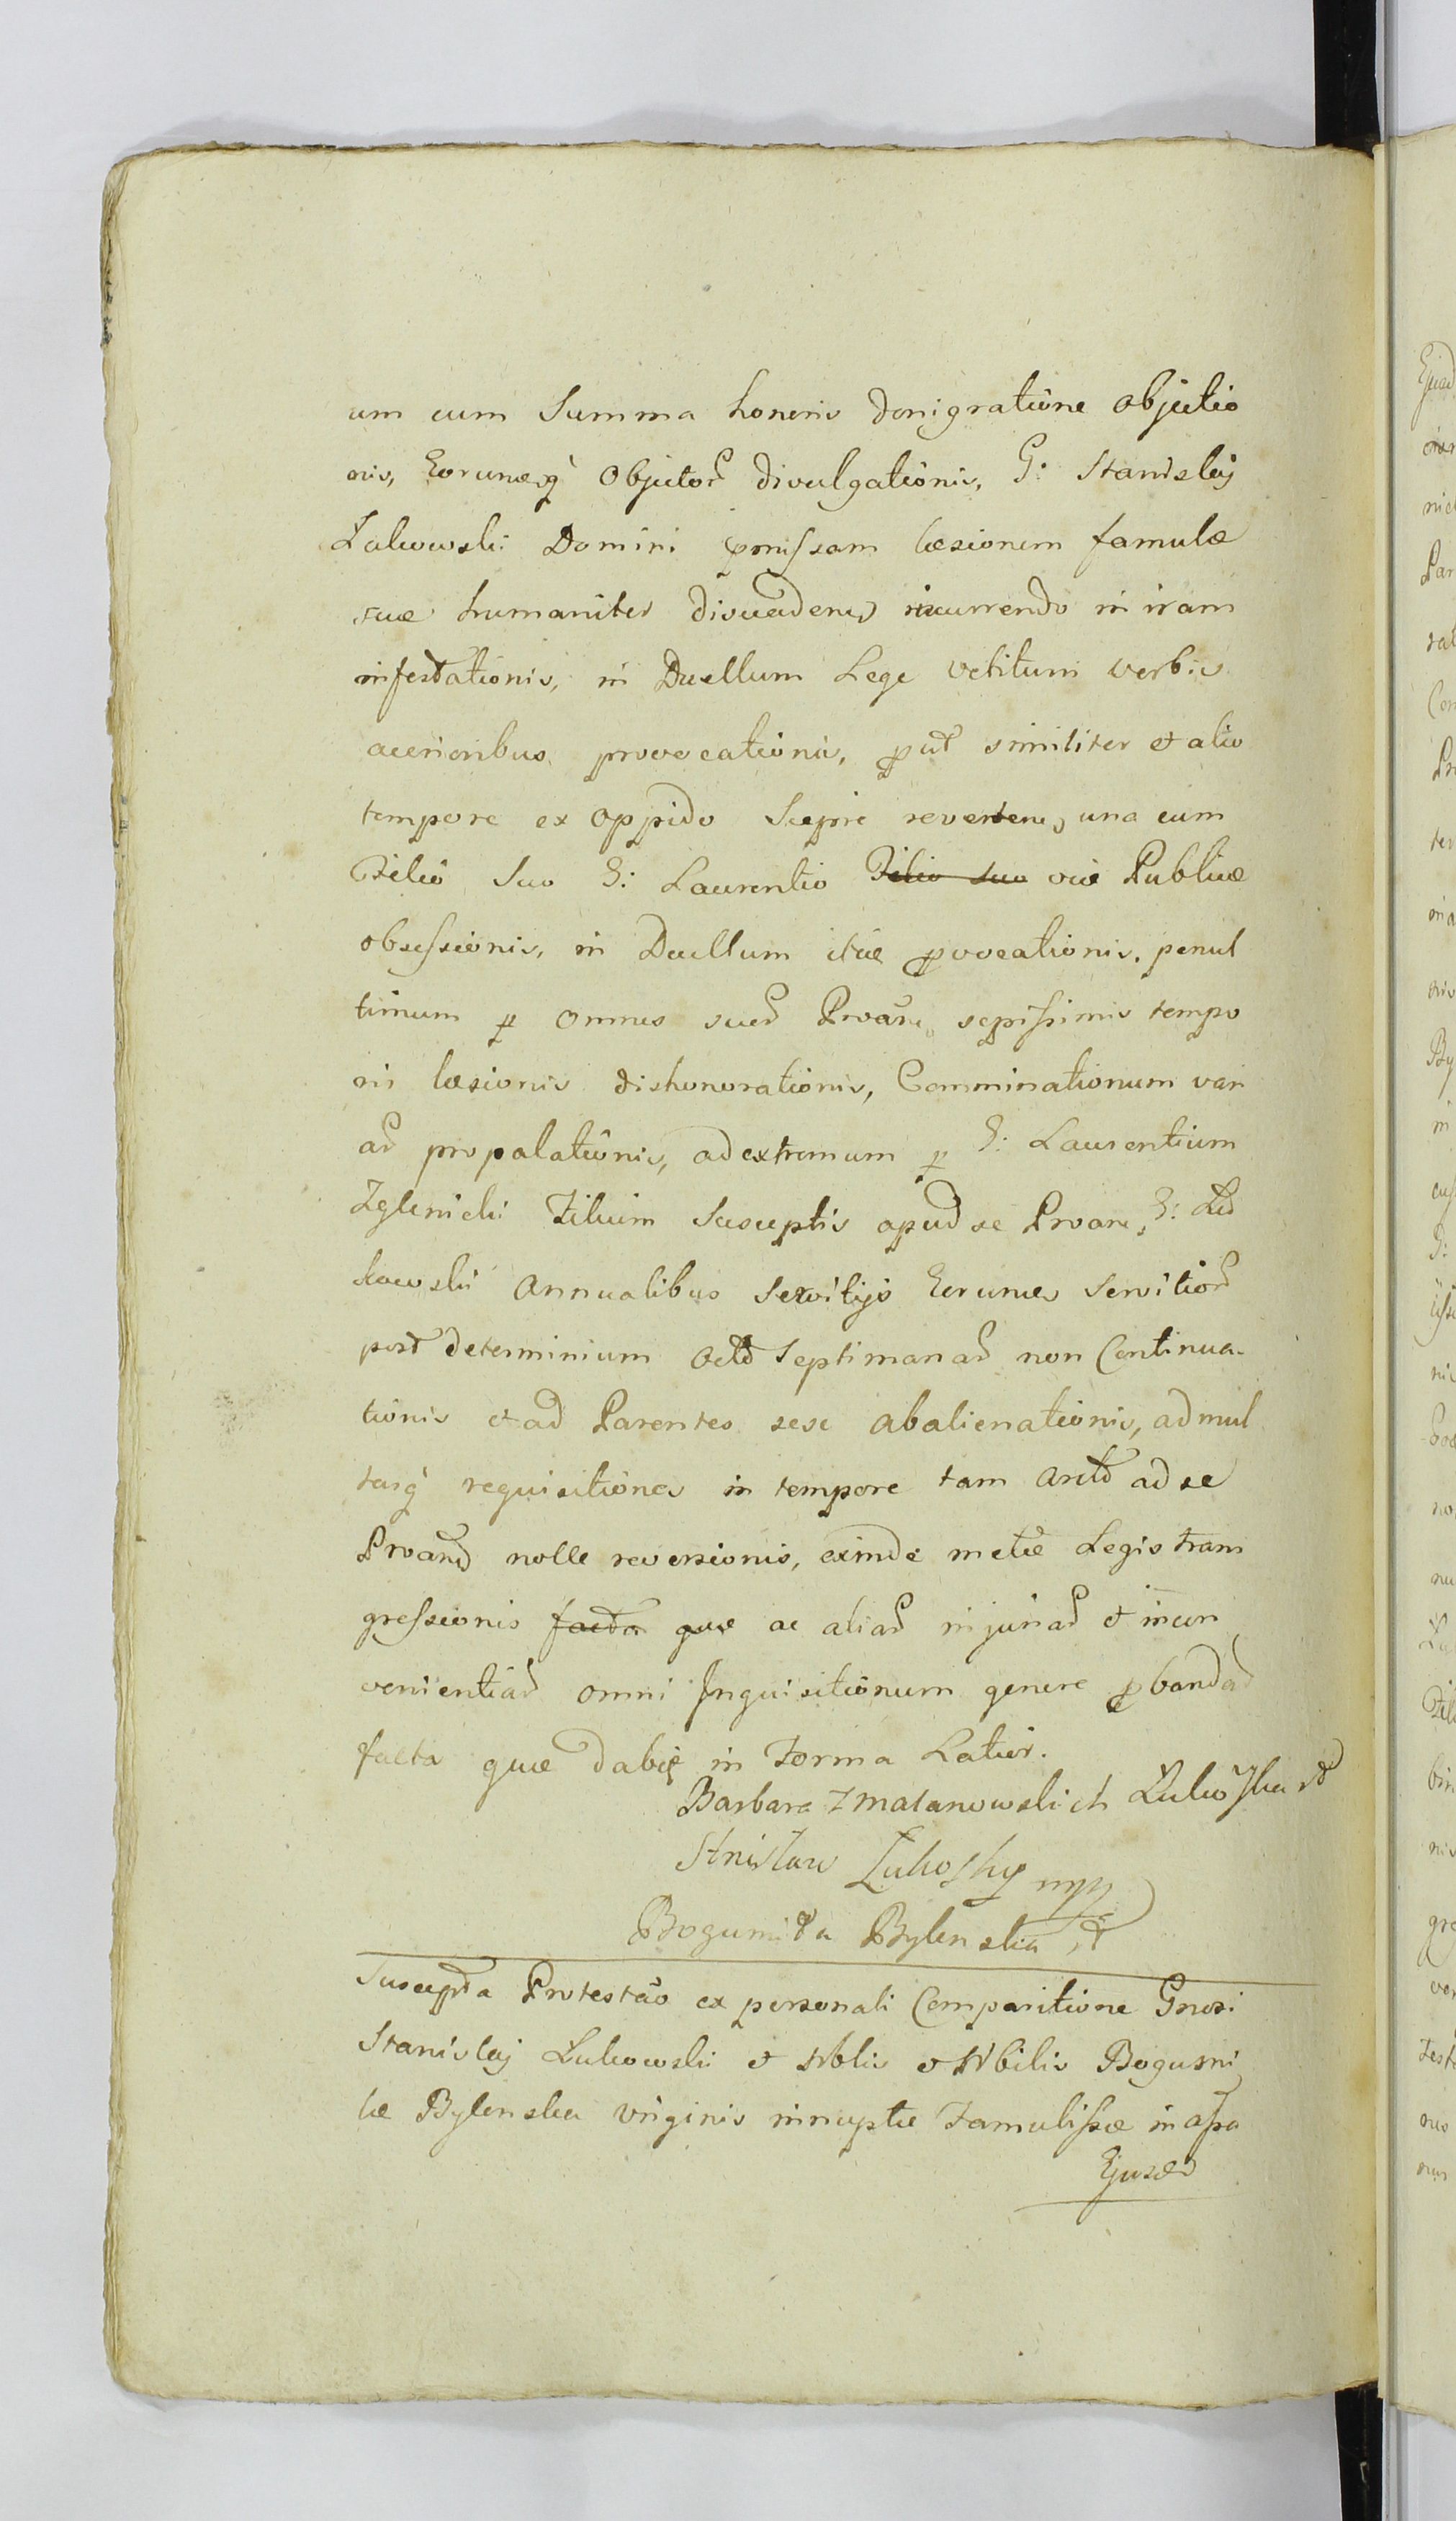 um cum Summa honoris denigratione objectio
nis, Eorumq̀ Objector divulgationis, G: Stanislaij
Łukowski Domini præmissam læsionem famulæ
suæ humaniter disvadens incurrendo in iram
infestationis, in Duellum Lege vetitum verbis
acerioribus provocationis, put similiter et alio
tempore ex oppido Sierpie revertens, una cum
Filio Suo G: Laurentio Filio suo viæ Publicæ
obsessionis, in Duellum itae provocationis. penul
timum p omnes sued Proãn sepissimis tempo
ris læsionis dishonorationis, Comminationum vari
ar propalationis, ad extremum p G: Laurentium
Zglenicki Filium Susceptis apud se Proan, G: Łu
kowski Annualibus Servitijs Eorumq Servitior
post determinium octo Septimanar non Continua-
tionis et ad Parentes sese abalienationis, ad mul
tasq̀ requisitiones in tempore tam arcto ad se
Proand nolle reversionis, exinde metæ Legis trans
gressionis facta quæ ac aliar injuriar et incon
venientiar omni Inquisitionum genere pbandar
facta quæ dabit in Forma Latior.
Barbara Zmatanowskich Łukoska
Stnisław Łukosky mpp
Bogumiła Bylenska
Suscepta Protestão ex personali Comparitione Gnosi
Stanislaij Łukowski et Nblis et Nobilis Bogumi
læ Bylenska virginis innuptæ Famulissæ in aspa
Ejusd